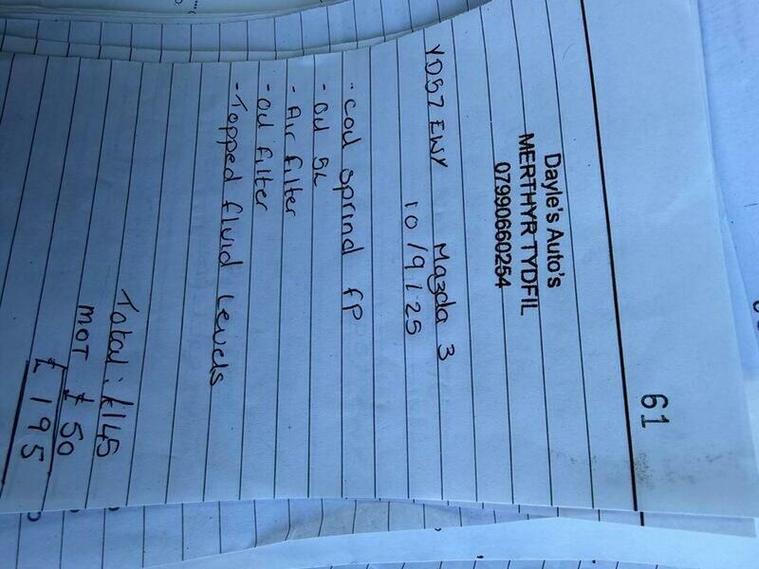 61
Dayle's Auto's
MERTHYR TYDFIL
07990660254
YD57 EWY Mazda 3
10/9/25
- Coil sprind fP
- Oil 5L
- Air filter
- Oil filter
- Topped fluid levels
Total: £145
MOT £50
£195